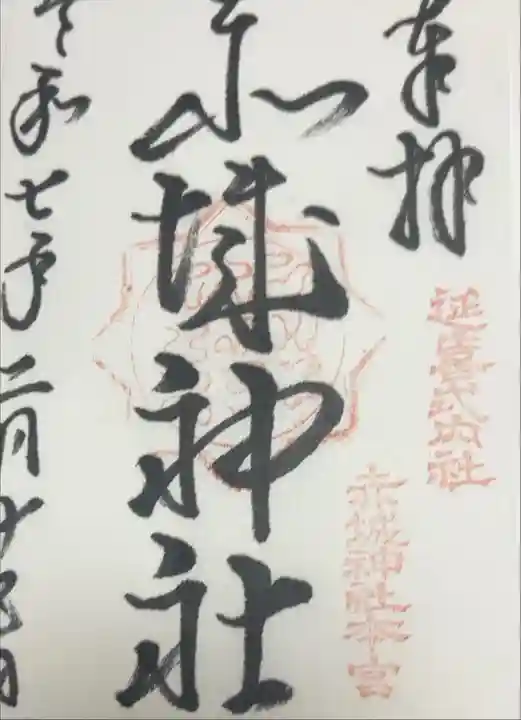 奉拝
延喜式内社
赤城神社本宮
赤城神社
令和七年二月廿